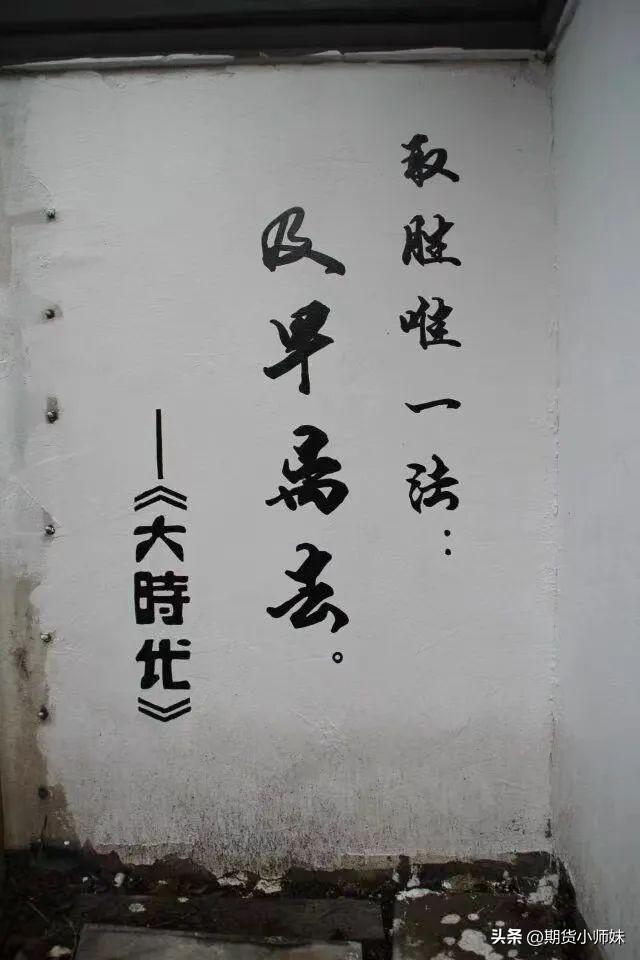 取胜唯一法：
及早离去。
——《大時代》
头条 @期货小师妹